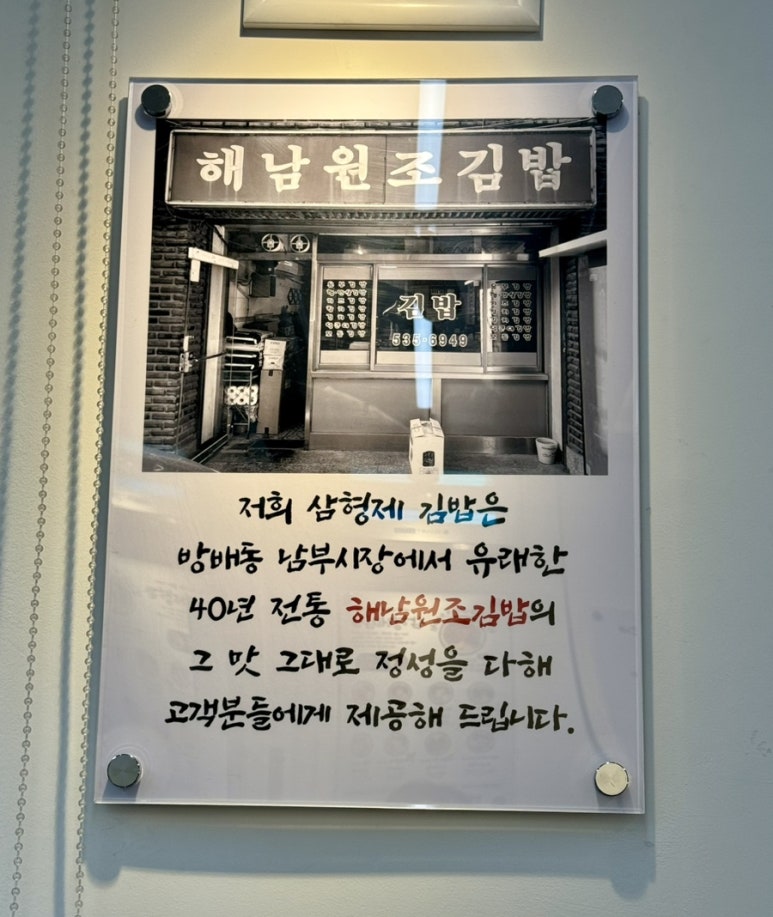 해남원조김밥
김밥
535-6949
저희 삼형제 김밥은
방배동 남부시장에서 유래한
40년 전통 해남원조김밥의
그 맛 그대로 정성을 다해
고객분들에게 제공해 드립니다.